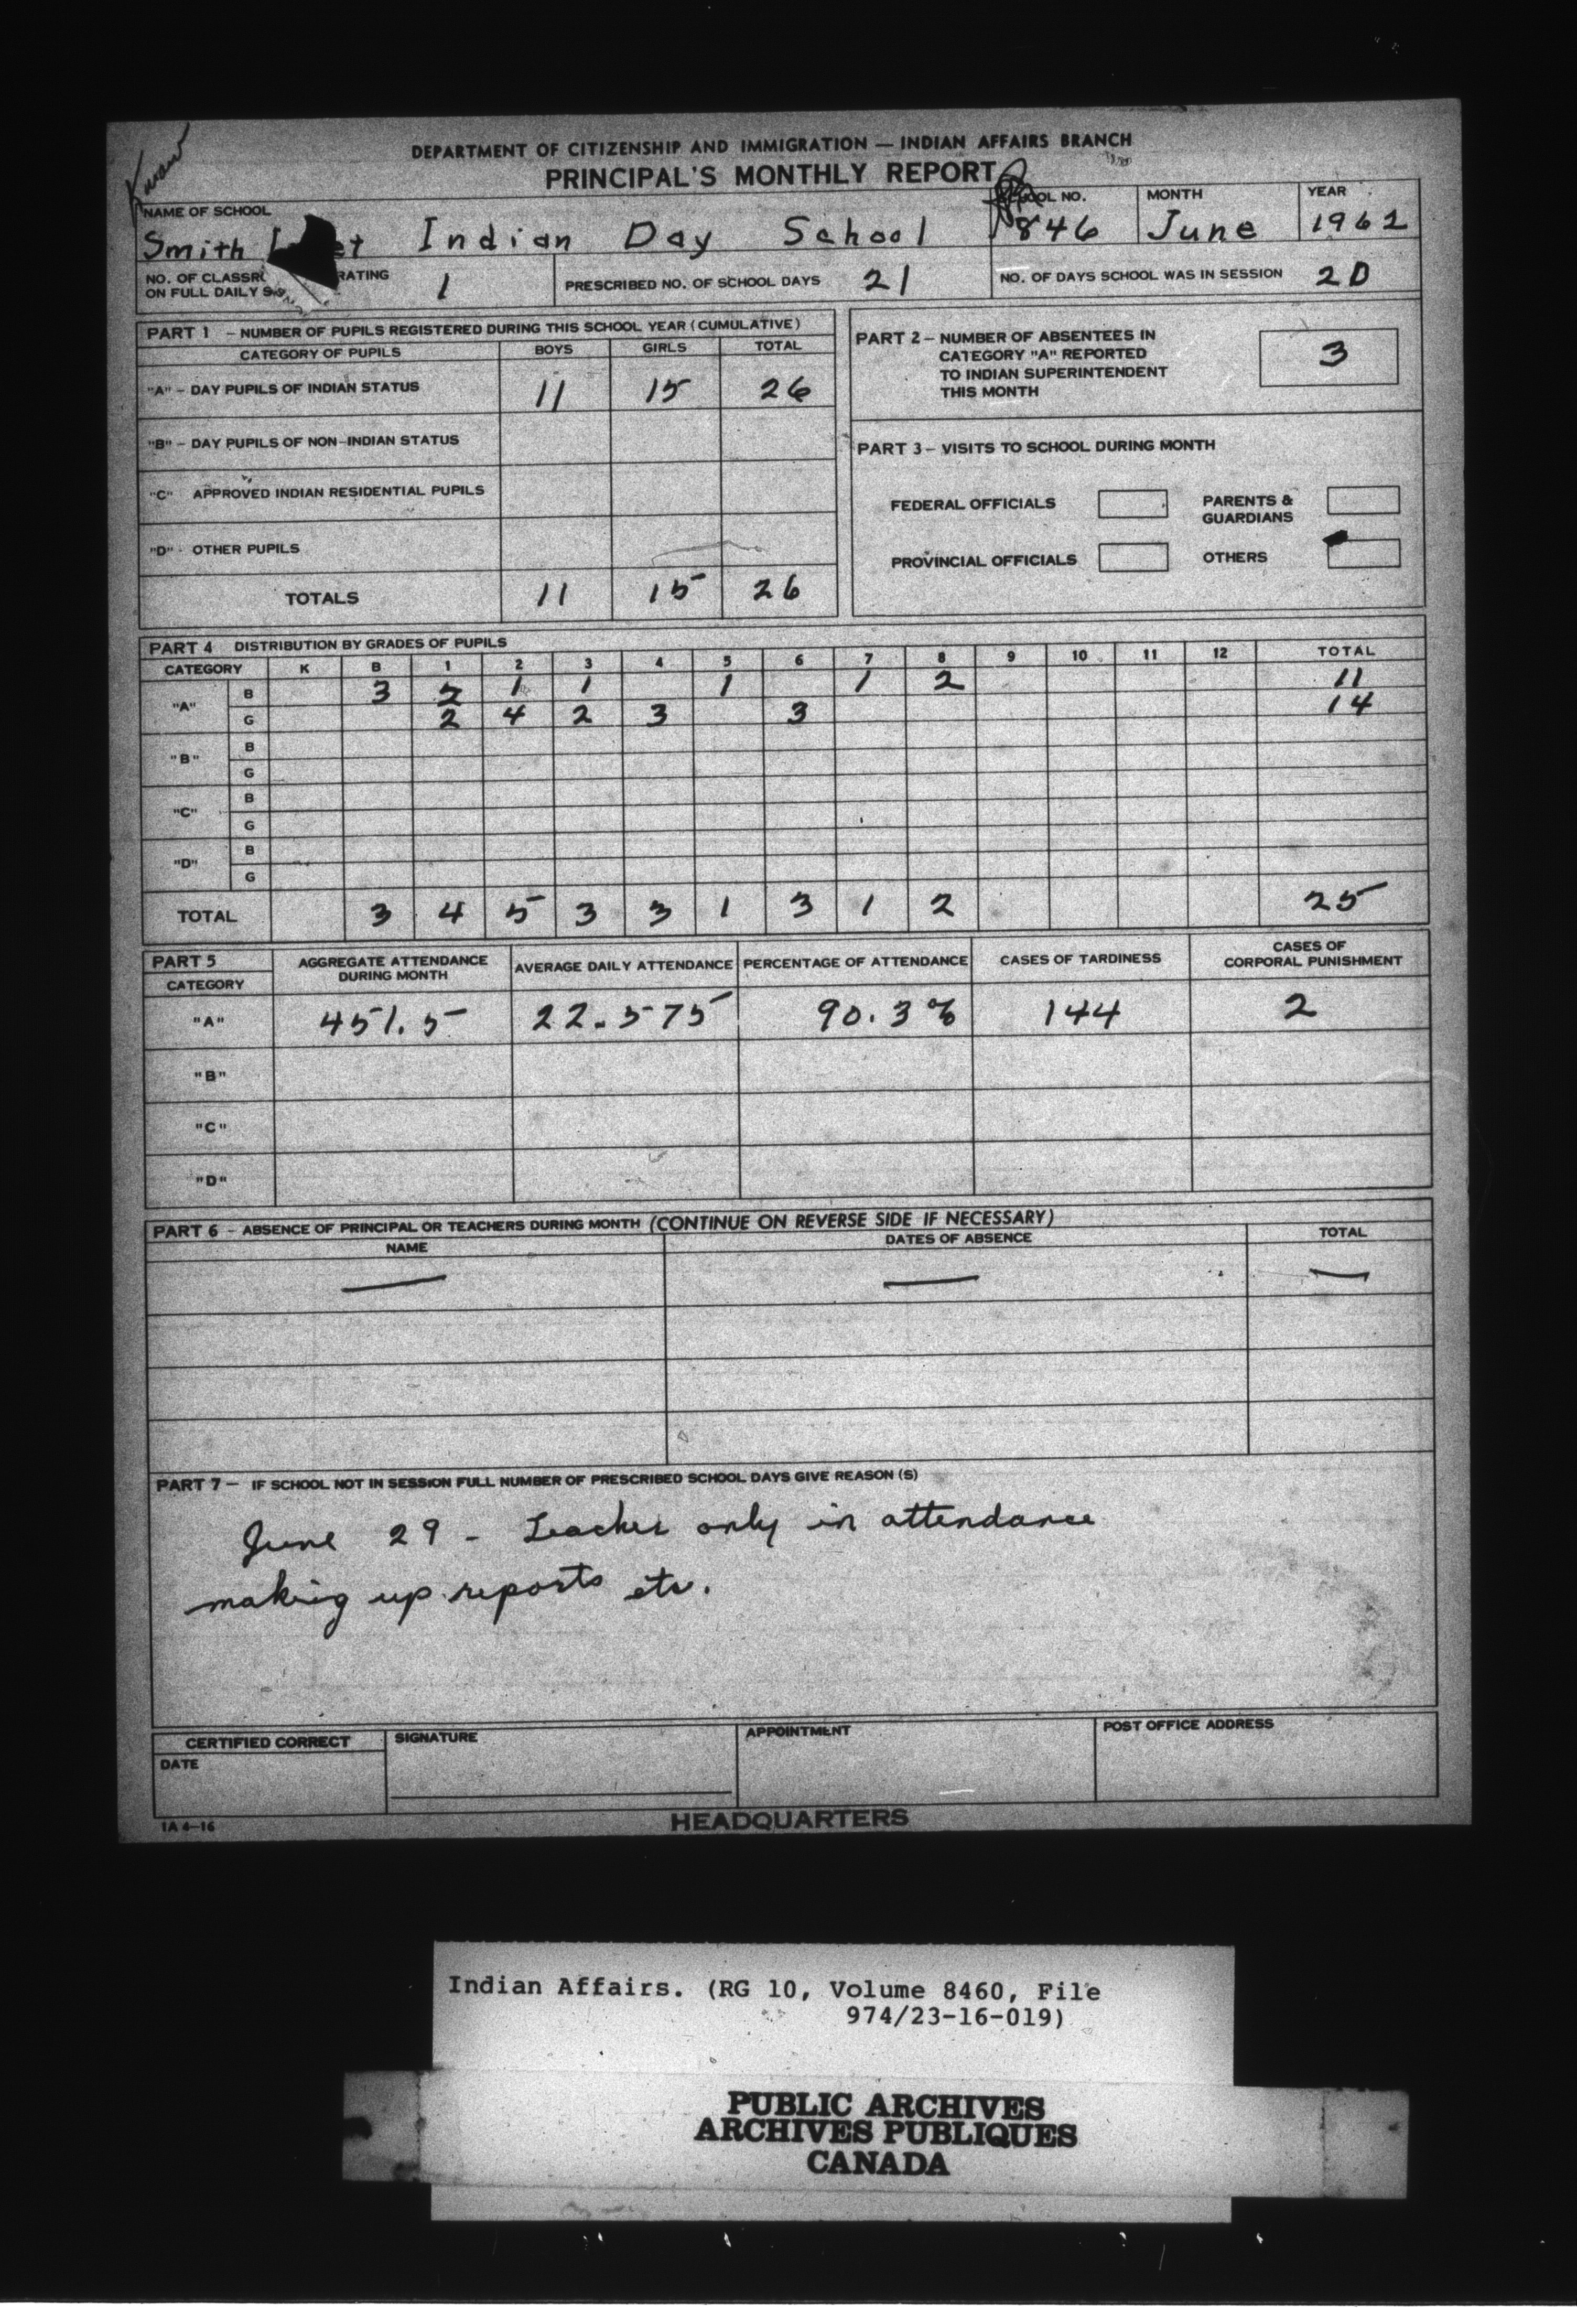 DEPARTMENT OF CITIZENSHIP AND IMMIGRATION — INDIAN AFFAIRS BRANCH
PRINCIPAL'S MONTHLY REPORT
NAME OF SCHOOL
Smith Indian Day School
NO.
846
MONTH
June
YEAR
1962
NO. OF CLASSR RATING
ON FULL DAILY
1
PRESCRIBED NO. OF SCHOOL DAYS 21
NO. OF DAYS SCHOOL WAS IN SESSION 20
PART 1 – NUMBER OF PUPILS REGISTERED DURING THIS SCHOOL YEAR (CUMULATIVE)
CATEGORY OF PUPILS BOYS GIRLS TOTAL
"A" – DAY PUPILS OF INDIAN STATUS 11 15 26
"B" – DAY PUPILS OF NON-INDIAN STATUS
"C" APPROVED INDIAN RESIDENTIAL PUPILS
"D" - OTHER PUPILS
TOTALS 11 15 26
PART 2 – NUMBER OF ABSENTEES IN
CATEGORY "A" REPORTED
TO INDIAN SUPERINTENDENT
THIS MONTH
3
PART 3 – VISITS TO SCHOOL DURING MONTH
FEDERAL OFFICIALS
PARENTS &
GUARDIANS
PROVINCIAL OFFICIALS
OTHERS
PART 4 DISTRIBUTION BY GRADES OF PUPILS
CATEGORY K B 1 2 3 4 5 6 7 8 9 10 11 12 TOTAL
"A" B 3 2 1 1 1 1 2 11
G 2 4 2 3 3 14
"B" B
G
"C" B
G
"D" B
G
TOTAL 3 4 5 3 3 1 3 1 2 25
PART 5
CATEGORY
AGGREGATE ATTENDANCE
DURING MONTH
AVERAGE DAILY ATTENDANCE
PERCENTAGE OF ATTENDANCE
CASES OF TARDINESS
CASES OF
CORPORAL PUNISHMENT
"A" 451.5 22.575 90.3% 144 2
"B"
"C"
"D"
PART 6 – ABSENCE OF PRINCIPAL OR TEACHERS DURING MONTH (CONTINUE ON REVERSE SIDE IF NECESSARY)
NAME DATES OF ABSENCE TOTAL
— — —
PART 7 – IF SCHOOL NOT IN SESSION FULL NUMBER OF PRESCRIBED SCHOOL DAYS GIVE REASON (S)
June 29 - Teacher only in attendance
making up reports etc.
CERTIFIED CORRECT
DATE
SIGNATURE
APPOINTMENT
POST OFFICE ADDRESS
IA 4-16
HEADQUARTERS
Indian Affairs. (RG 10, Volume 8460, File
974/23-16-019)
PUBLIC ARCHIVES
ARCHIVES PUBLIQUES
CANADA